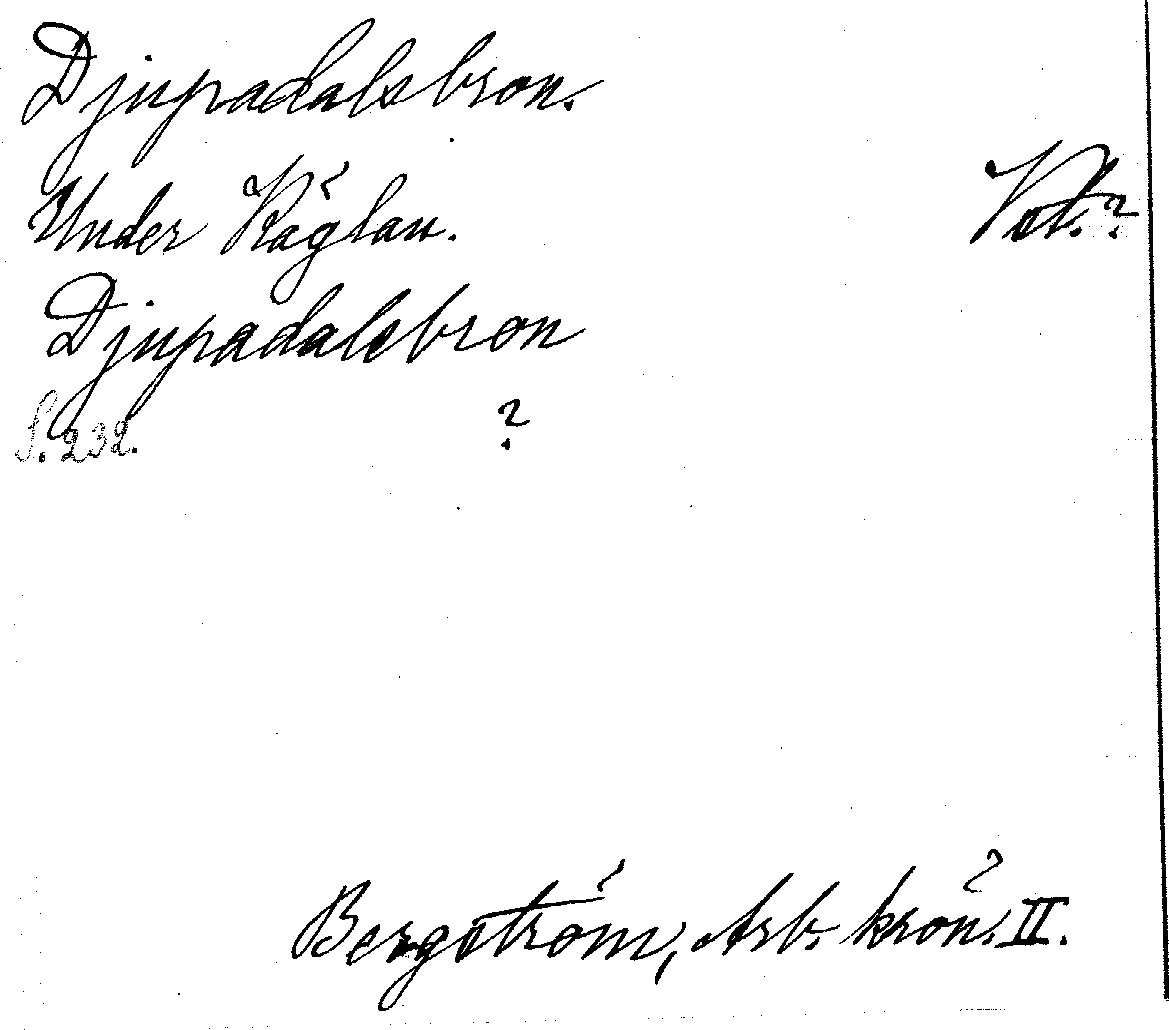 Djupadalsbron.
Under Käglan.
Djupadalsbron
S. 232. ?
Bergström, Arb. krön. II.